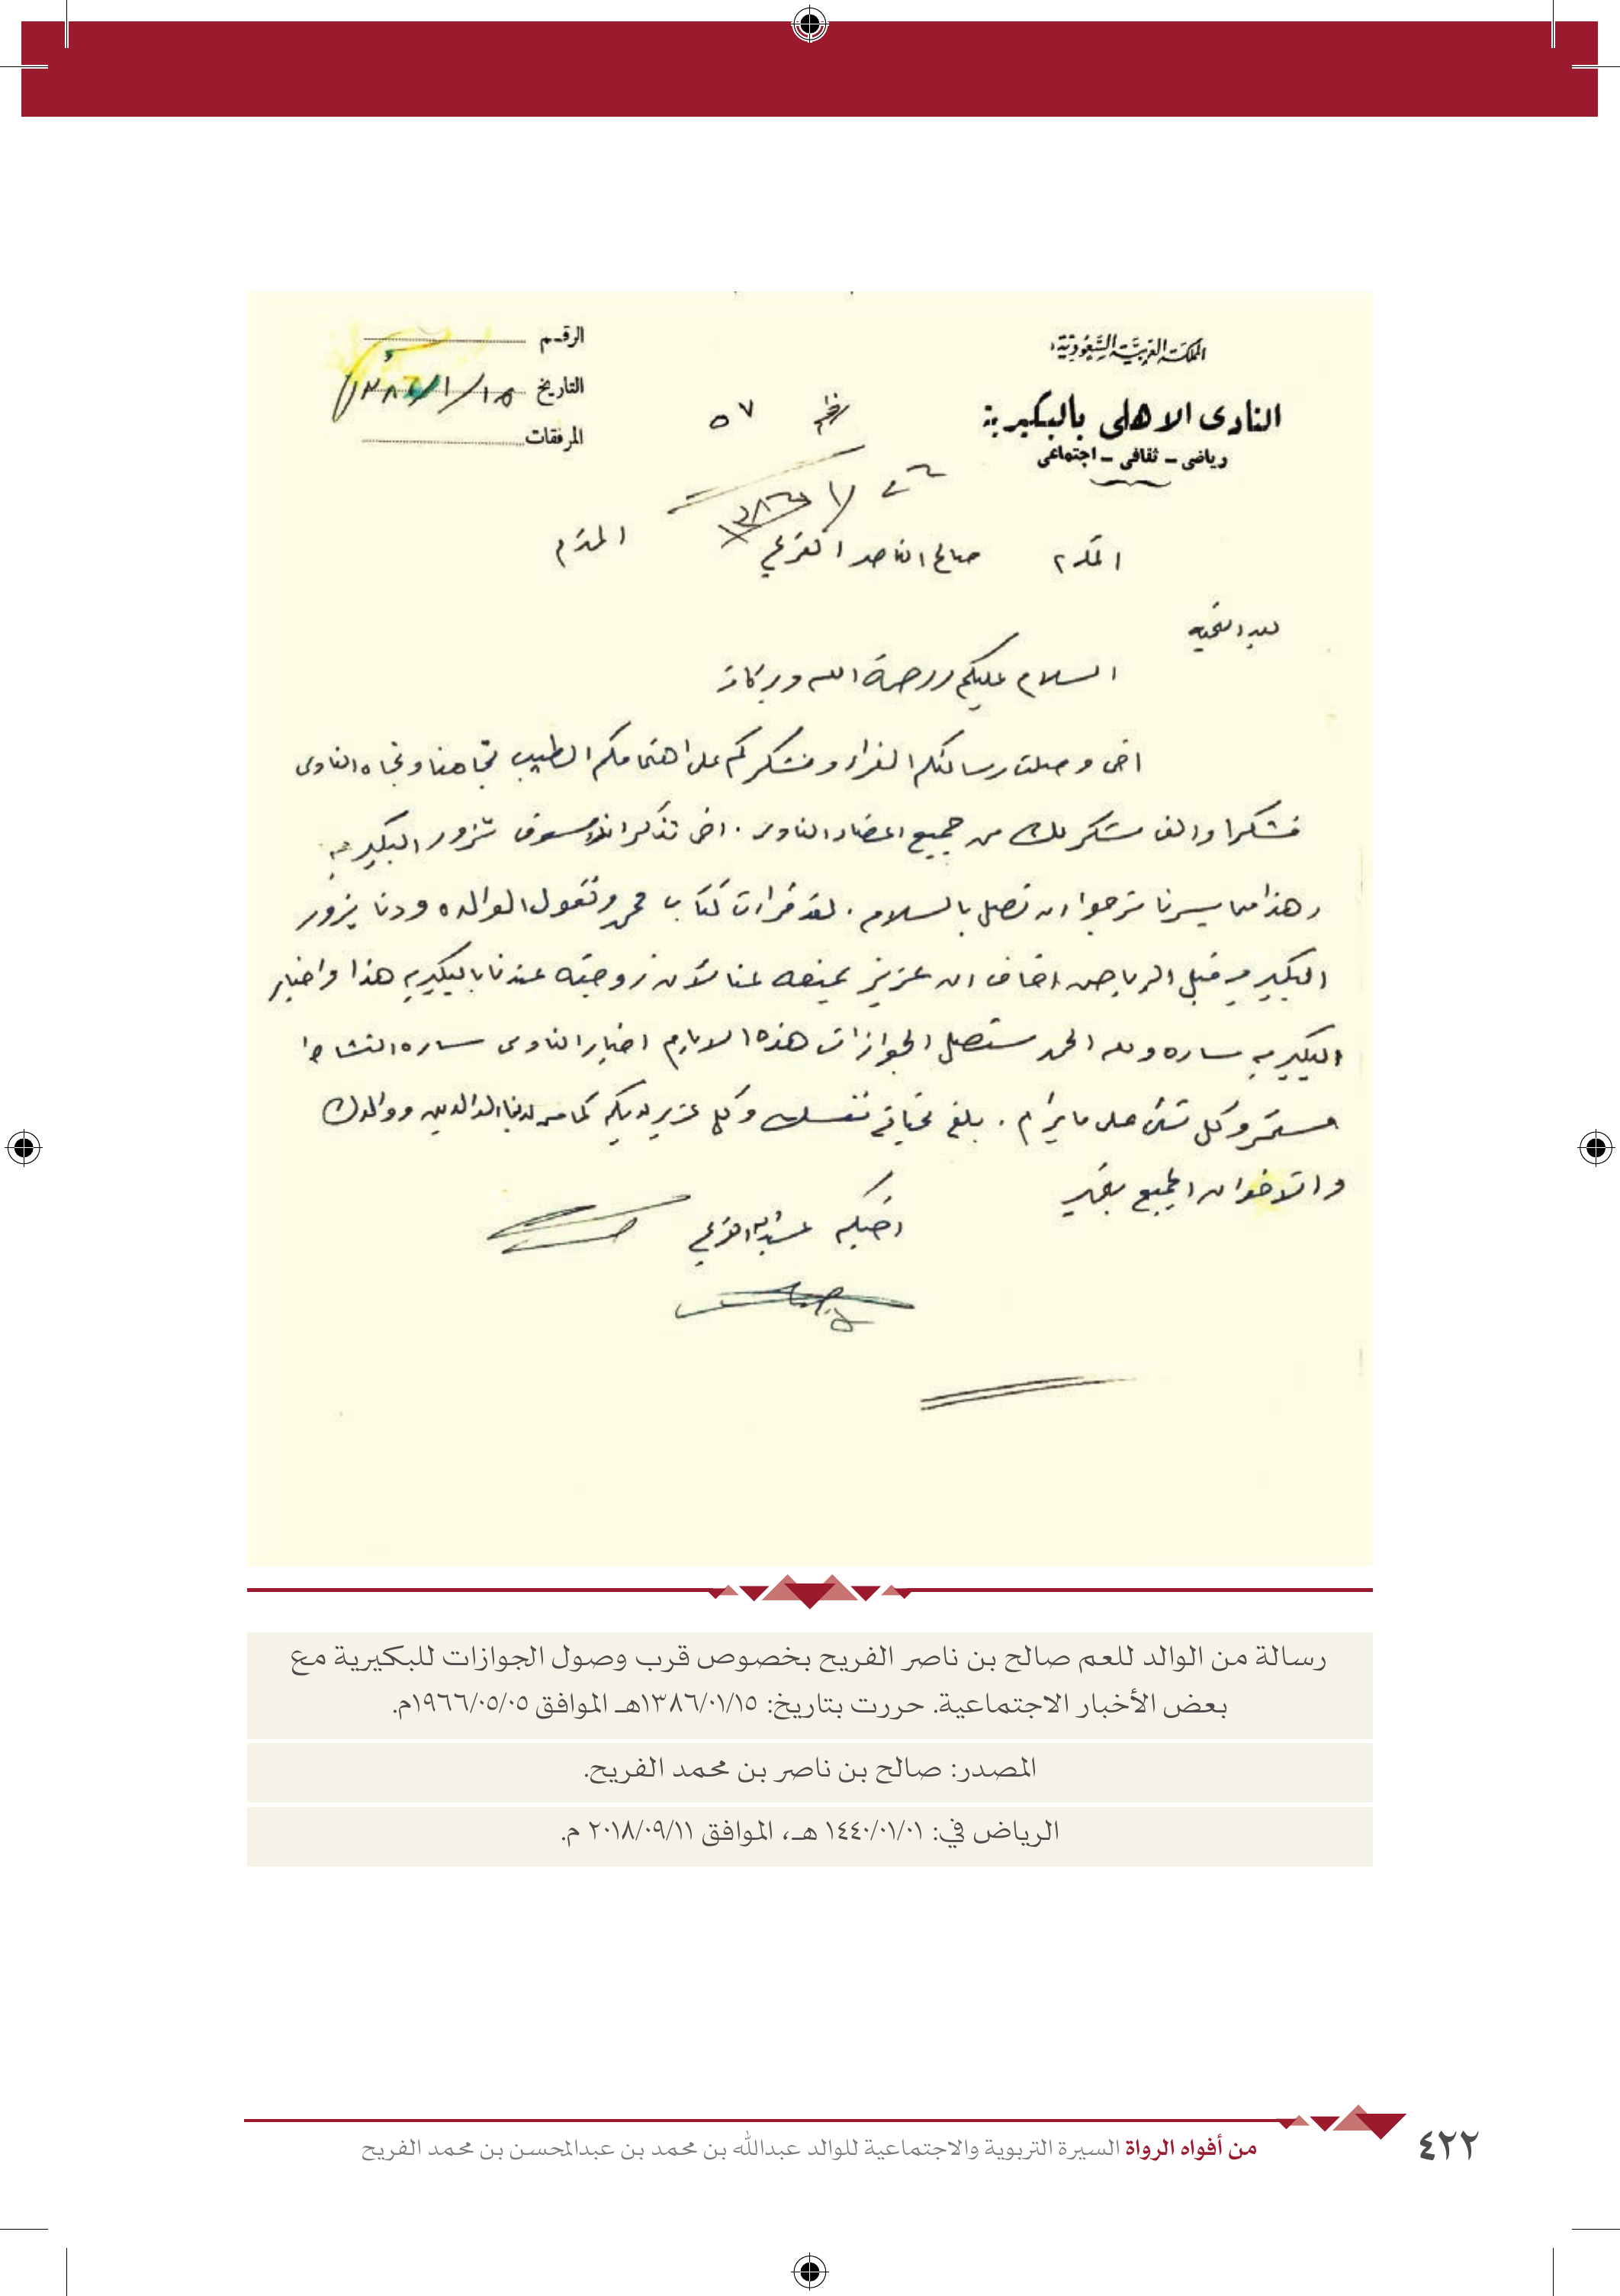 المملكة العربية السعودية
النادى الاهلى بالبكيرية
رياضى – ثقافى – اجتماعى
الرقـم
التاريخ ١٣٨٦/١/١٥
المرفقات
٥٧
المكرم صالح الناصر الفريح المحترم
بعد التحيه
السلام عليكم ورحمة الله وبركاته
اخى وصلت رسالتكم الغراء ونشكركم على اهتمامكم الطيب تجاهنا وتجاه النادى
فشكرا والف شكر لك من جميع اعضاء النادى . اخى تذكر انك سوف تزور البكيريه
وهذا مما يسرنا نرجوا ان تصل بالسلام . لقد قرات كتاب محمد وتقول الوالده ودنا يزور
البكيريه قبل الرياض اخاف ان عزيز يمنعه عنا لأن زوجته عندنا بالبكيريه هذا واخبار
البكيريه ساره ولله الحمد ستصل الجوازات هذه الايام اخبار النادى ساره النشاط
مستمر وكل شئ على مايرام . بلغ تحياتي نفسك وكل عزيز لديكم كما من لدينا الوالدين ووالدك
والاخوان الجميع بخير
اخيكم عبدالله الفريح
رسالة من الوالد للعم صالح بن ناصر الفريح بخصوص قرب وصول الجوازات للبكيرية مع
بعض الأخبار الاجتماعية. حررت بتاريخ: ١٣٨٦/٠١/١٥هـ الموافق ١٩٦٦/٠٥/٠٥م.
المصدر: صالح بن ناصر بن محمد الفريح.
الرياض في: ١٤٤٠/٠١/٠١ هـ، الموافق ٢٠١٨/٠٩/١١ م.
من أفواه الرواة السيرة التربوية والاجتماعية للوالد عبدالله بن محمد بن عبدالمحسن بن محمد الفريح
٤٢٢